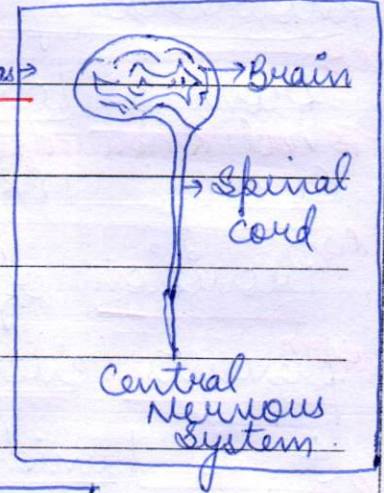 → Brain
→ Spinal
cord
Central
Nervous
System.